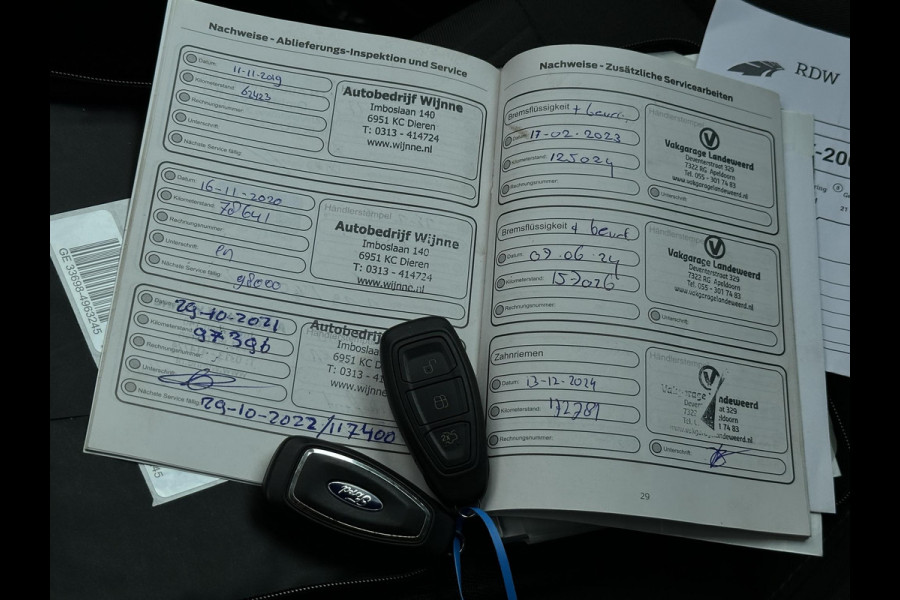 Nachweise - Ablieferungs-Inspektion und Service
Datum: 11-11-2019
Kilometerstand: 62423
Rechnungsnummer:
Unterschrift:
Nächste Service fällig:
Autobedrijf Wijnne
Imboslaan 140
6951 KC Dieren
T: 0313 - 414724
www.wijnne.nl
Datum: 16-11-2020
Kilometerstand: 78641
Rechnungsnummer:
Unterschrift:
Nächste Service fällig: 98000
Händlerstempel
Autobedrijf Wijnne
Imboslaan 140
6951 KC Dieren
T: 0313 - 414724
www.wijnne.nl
Datum: 29-10-2021
Kilometerstand: 97396
Rechnungsnummer:
Unterschrift:
Nächste Service fällig: 29-10-2022/117400
Autobedrij
Imbosl
6951 KC
T: 0313 - 41
www.wijn
Nachweise - Zusätzliche Servicearbeiten
Bremsflüssigkeit + beurt
Datum: 17-02-2023
Kilometerstand: 125024
Rechnungsnummer:
Händlerstempel
Vakgarage Landeweerd
Deventerstraat 329
7322 RG Apeldoorn
Tel. 055 - 301 74 83
www.vakgaragelandeweerd.nl
Unterschrift:
Bremsflüssigkeit + beurt
Datum: 09-06-24
Kilometerstand: 157026
Rechnungsnummer:
Händlerstempel
Vakgarage Landeweerd
Deventerstraat 329
7322 RG Apeldoorn
Tel. 055 - 301 74 83
www.vakgaragelandeweerd.nl
Unterschrift:
Zahnriemen
Datum: 13-12-2024
Kilometerstand: 172781
Rechnungsnummer:
Händlerstempel
ndeweerd
Deve
at 329
7322
ldoorn
Tel.
1 74 83
ndeweerd.nl
Unterschrift:
29
Ford
GE 33698-4963245
RDW